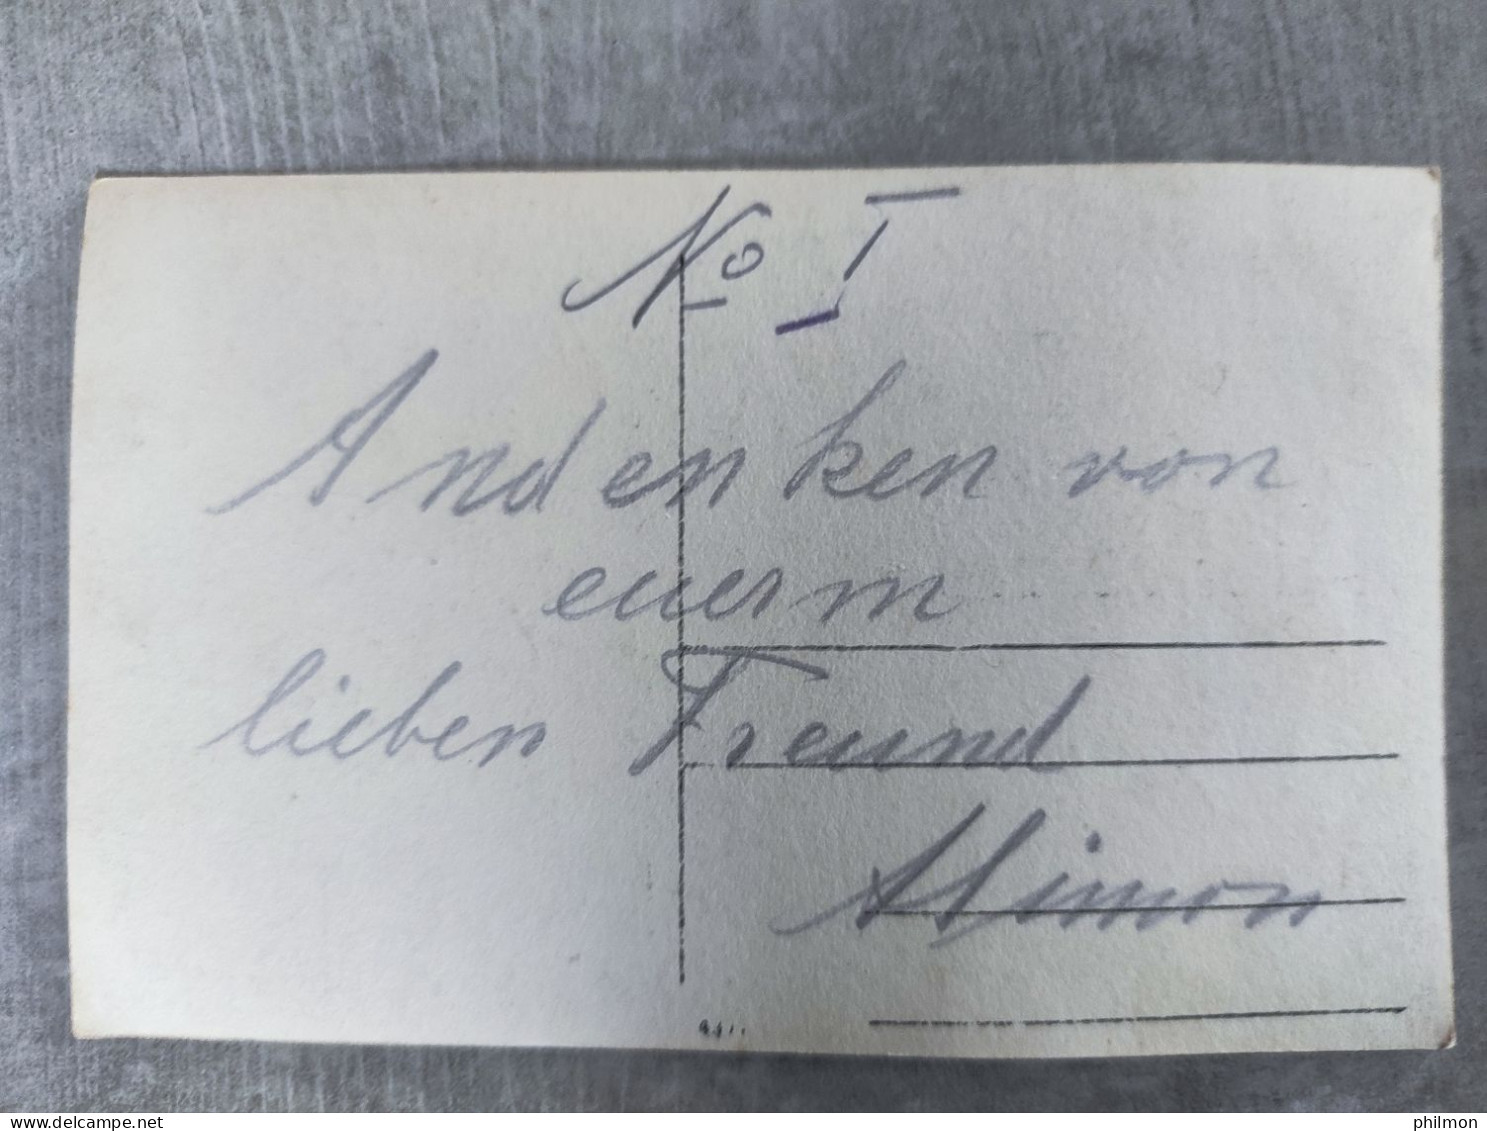 No I
Andenken von
euerm
lieben Freund
Simon
www.delcampe.net
philmon